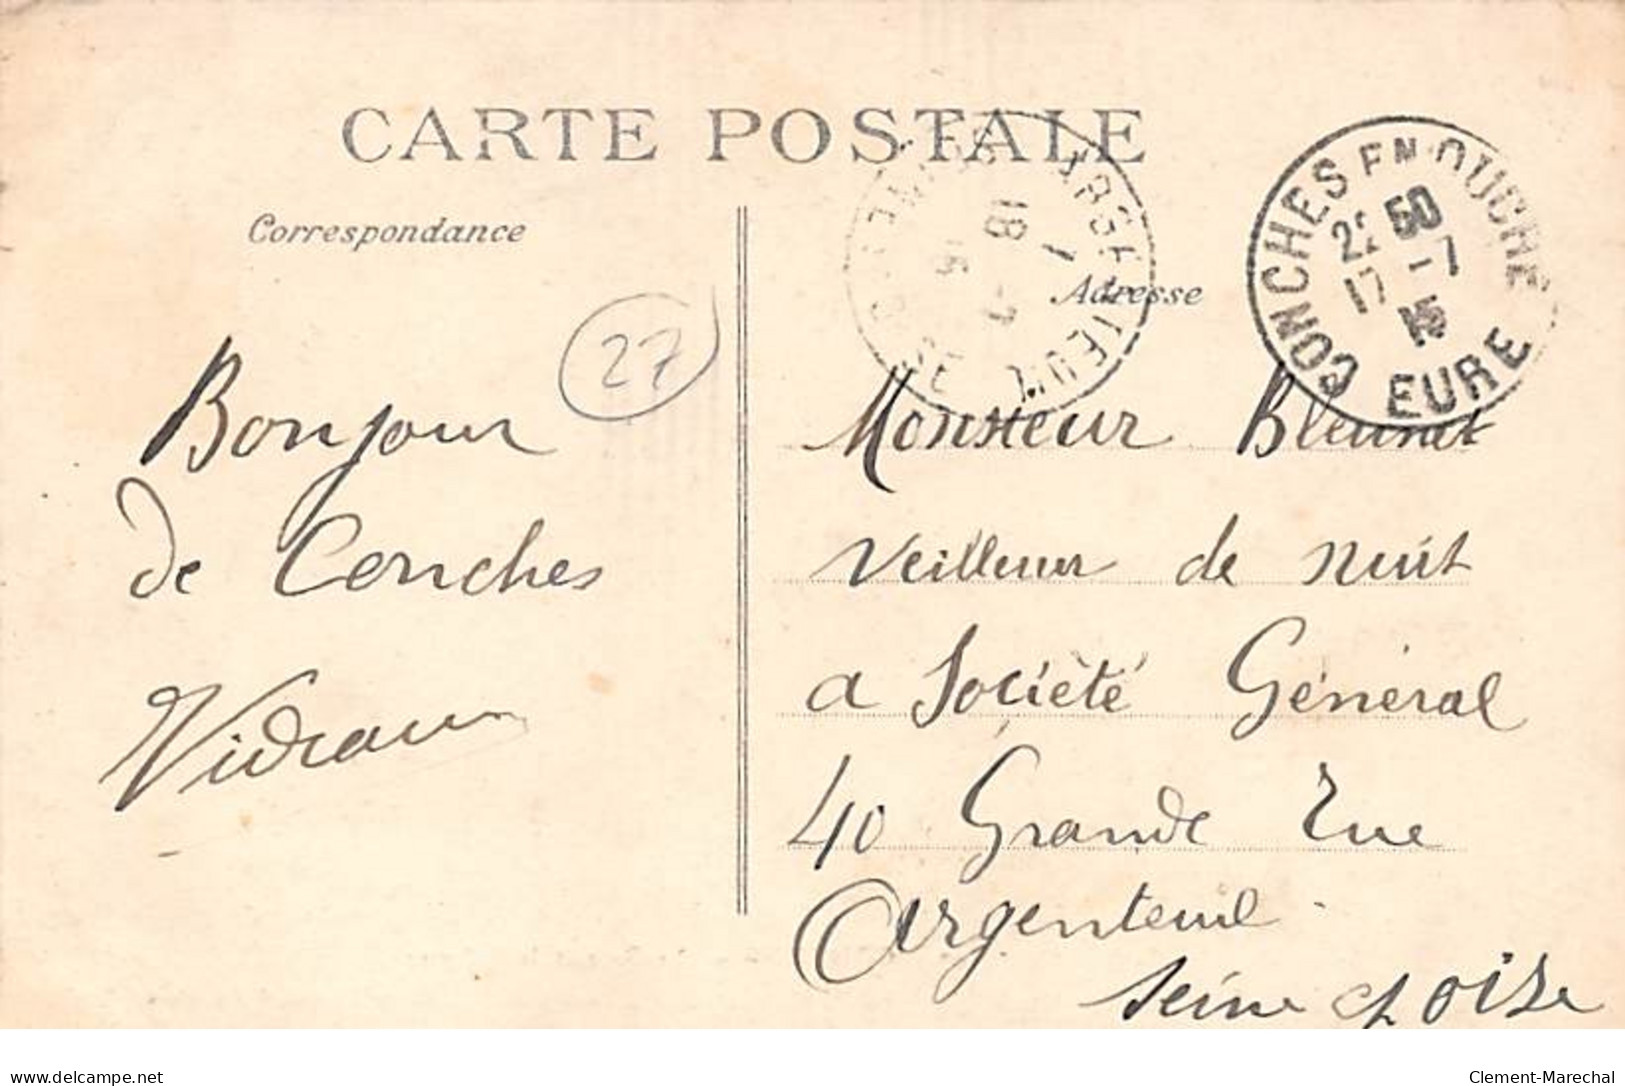 CARTE POSTALE
Correspondance
Adresse
CONCHES EN OUCHE
22 50
17 - 7
15
EURE
ARGENTEUIL
18 - 7
15
27
Bonjour
de Conches
Monsieur
Veilleur de nuit
a Société Général
40 Grande Rue
Argenteuil
Seine & Oise
www.delcampe.net
Clement-Marechal